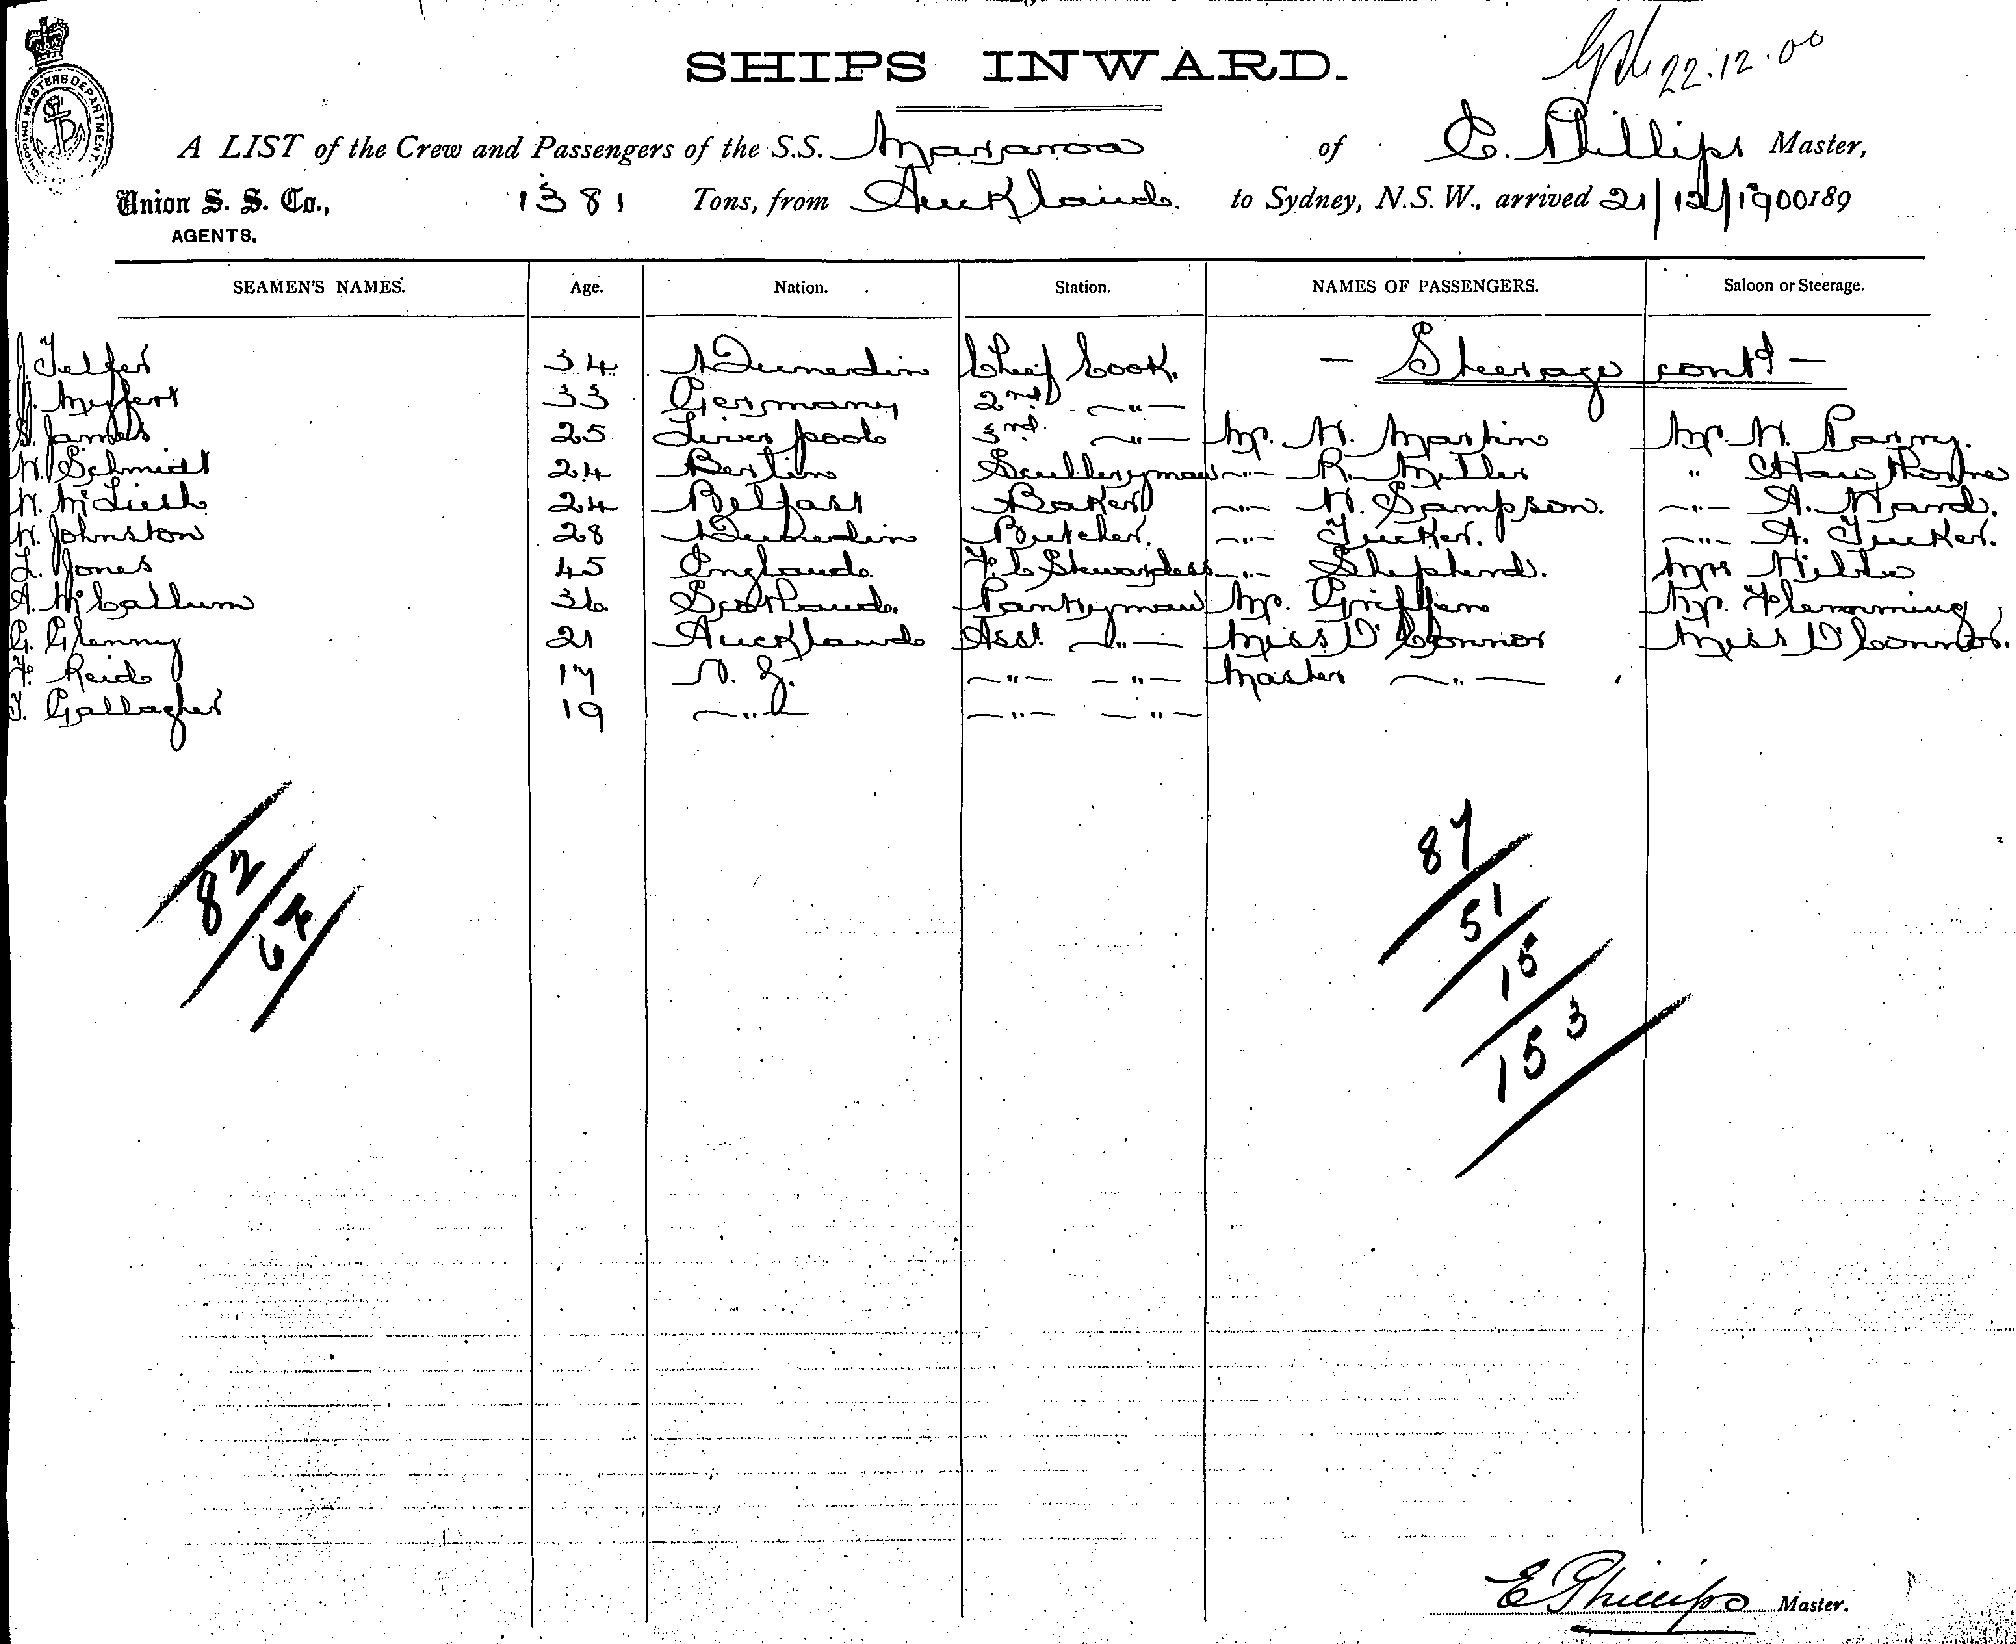 SHIPS INWARD.
22.12.00
SHIPPING MASTERS DEPARTMENT
A LIST of the Crew and Passengers of the S.S. Mararoa of E. Phillips Master,
Union S. S. Co., 1381 Tons, from Auckland to Sydney, N.S.W., arrived 21/12/1900 189
AGENTS.
SEAMEN'S NAMES. Age. Nation. Station. NAMES OF PASSENGERS. Saloon or Steerage.
J Telfer 34 Dunedin Chief Cook. — Steerage contd —
Meffert 33 Germany 2nd —"—
S. James 25 Liverpool 3rd —"— Mr. H. Martin Mr H. Parry.
W. Schmidt 24 Berlin Sculleryman —"— R. Miller " Hawthorne
W. McLiesh 24 Belfast Baker —"— H. Sampson. —"— A. Ward.
W. Johnston 28 Dunedin Butcher. —"— Tucker. —"— A. Tucker.
L. Jones 45 England F. C Stewardess —"— Shepherd. Mrs
A. McCallum 36 Scotland. Pantryman Mr. Griffen Mr. Flemming
G. Glenny 21 Auckland Asst. —"— Miss O'Connor Miss O'Connor.
F. Reid 17 N. Z. —"— —"— Master —"—
T. Gallagher 19 —"— —"— —"—
82
64
87
51
15
153
E Phillips Master.